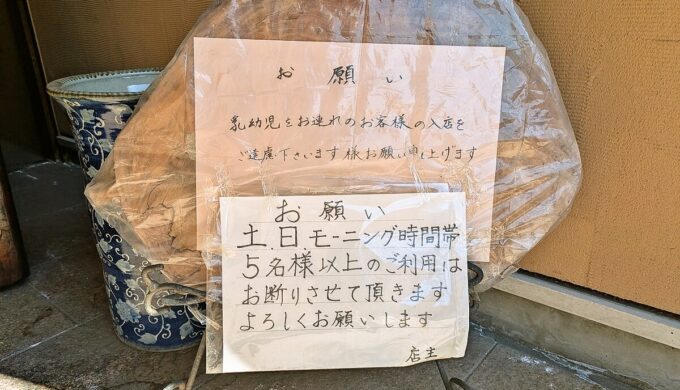 お願い
乳幼児をお連れのお客様の入店を
ご遠慮下さいます様お願い申し上げます
お願い
土.日.モーニング時間帯
5名様以上のご利用は
お断りさせて頂きます
よろしくお願いします
店主